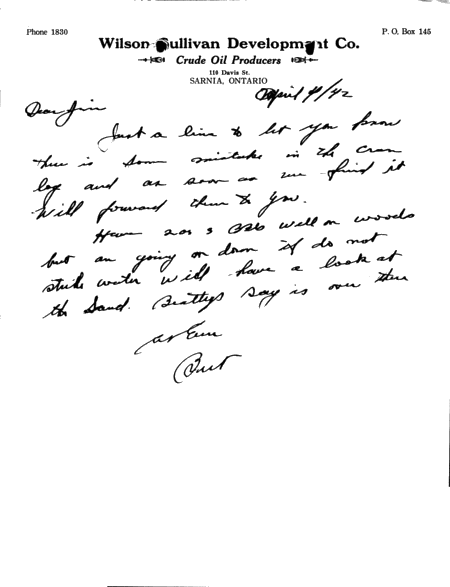 Phone 1830
P. O. Box 145
Wilson-Sullivan Development Co.
Crude Oil Producers
110 Davis St.
SARNIA, ONTARIO
April 4/42
Dear Jim
Just a line to let you know
there is some mistake in the
log and as soon as we find it
will forward them to you.
Have well on woods
but am going on down if do not
strike water will have a look at
the sand. Beattys say is over there
as Ever
Burt